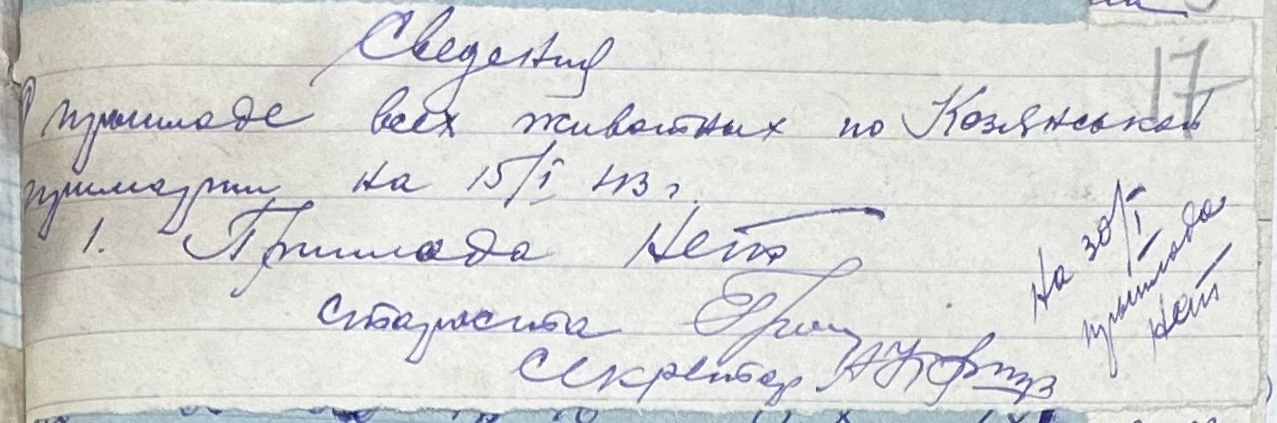 Сведения
17
о приплоде всех животных по Козянськой
примарии на 15/I 43 г.
1. Приплода Нет
староста
Секретар
На 30/I
приплода
нет